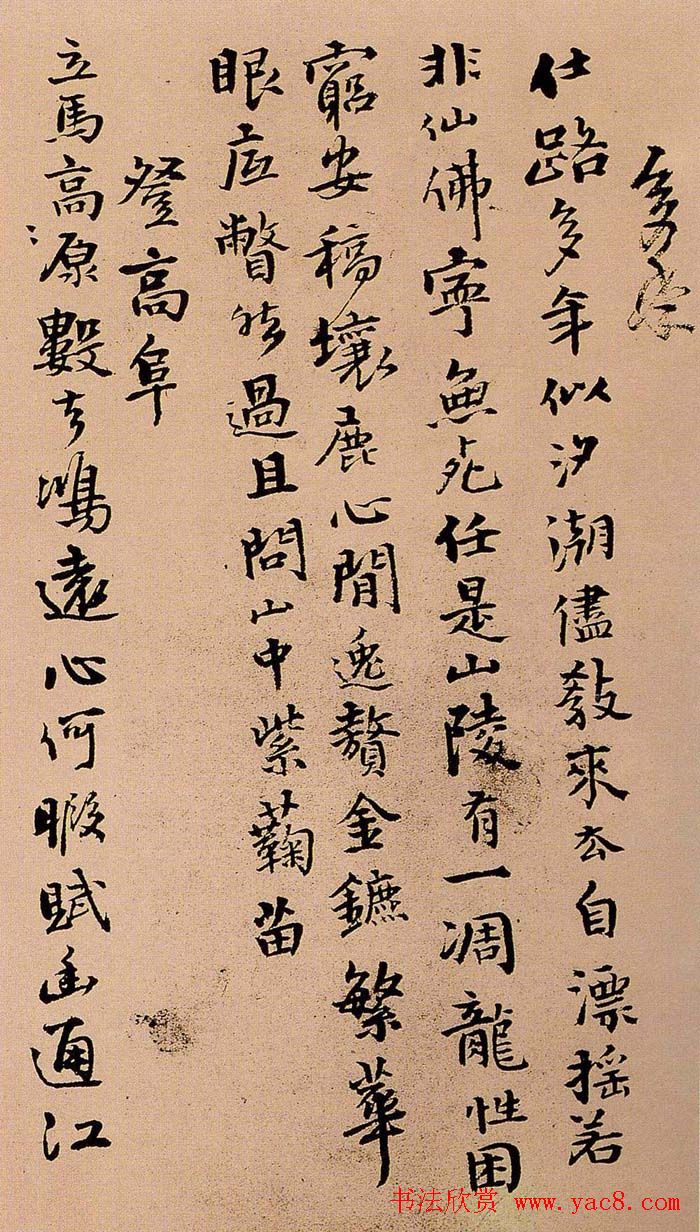 多
仕路多年似汐潮儘教來去自漂搖若
非仙佛寧魚死任是山陵有一凋龍性困
窮安稿壤鹿心閒逸贅金鑣繁華
眼底瞥然過且問山中紫蘜苗
登高阜
立馬高源數去鴻遠心何暇賦幽通江
书法欣赏 www.yac8.com